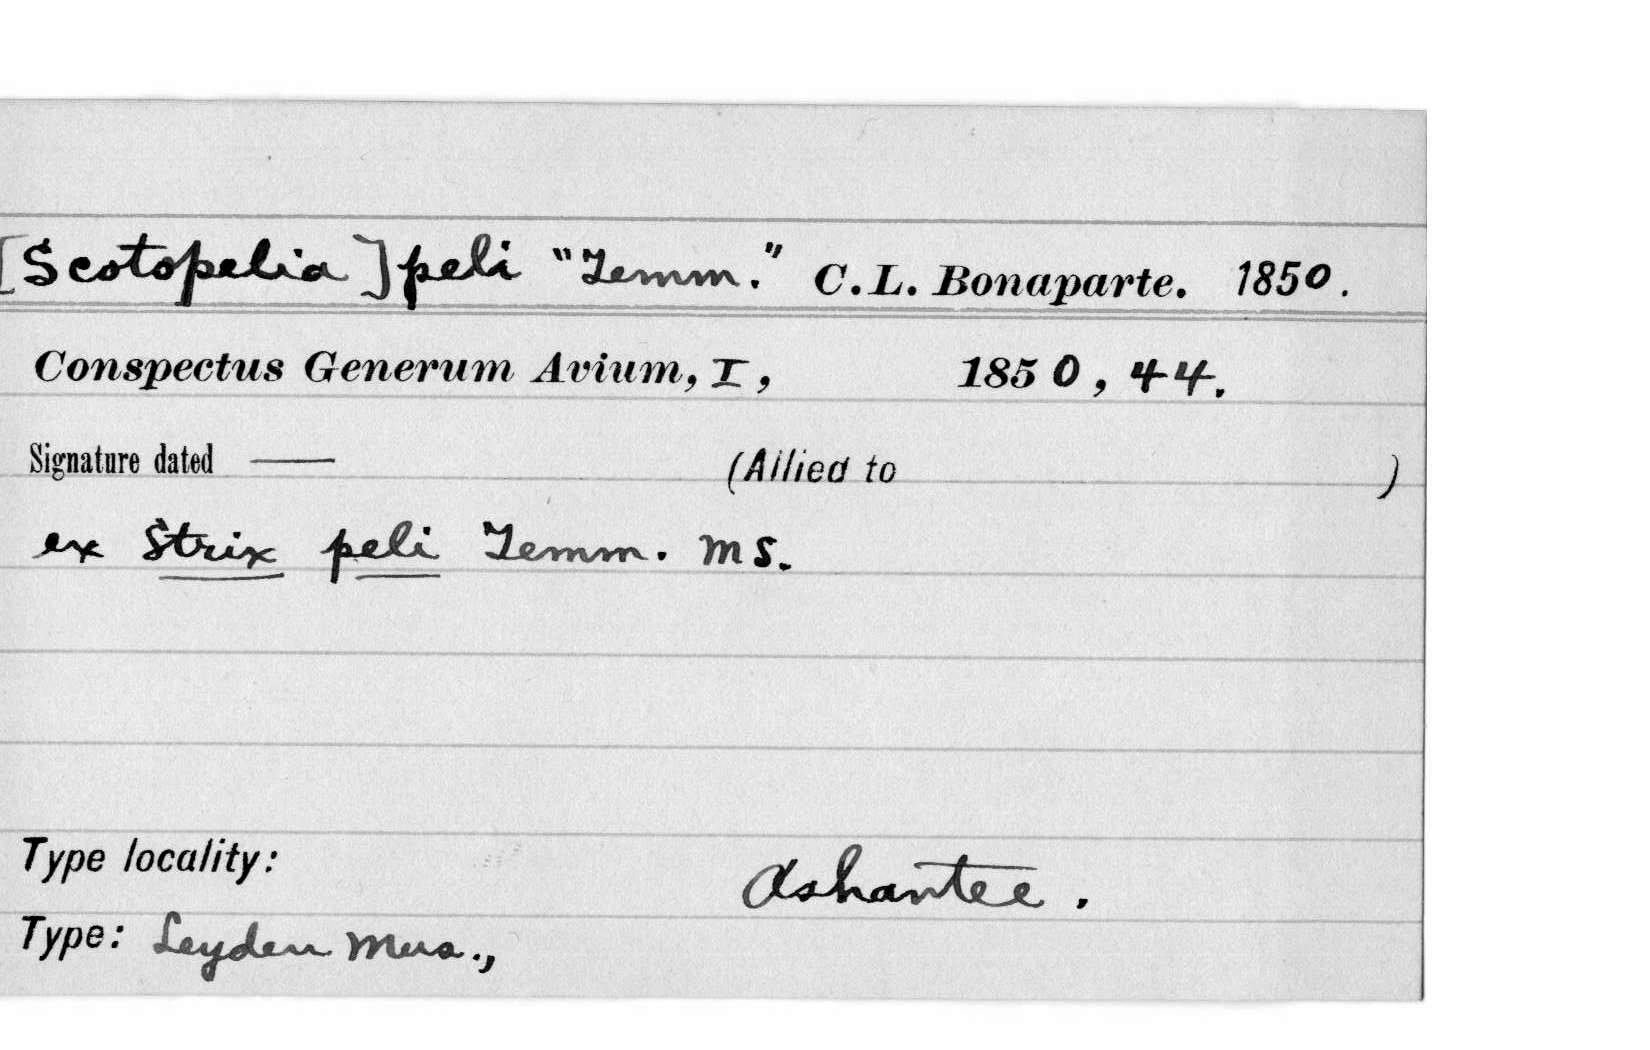 [Scotopelia] peli "Temm." C. L. Bonaparte. 1850.
Conspectus Generum Avium, I, 1850, 44.
Signature dated — (Allied to )
ex Strix peli Temm. MS.
Type locality: Ashantee.
Type: Leyden Mus.,